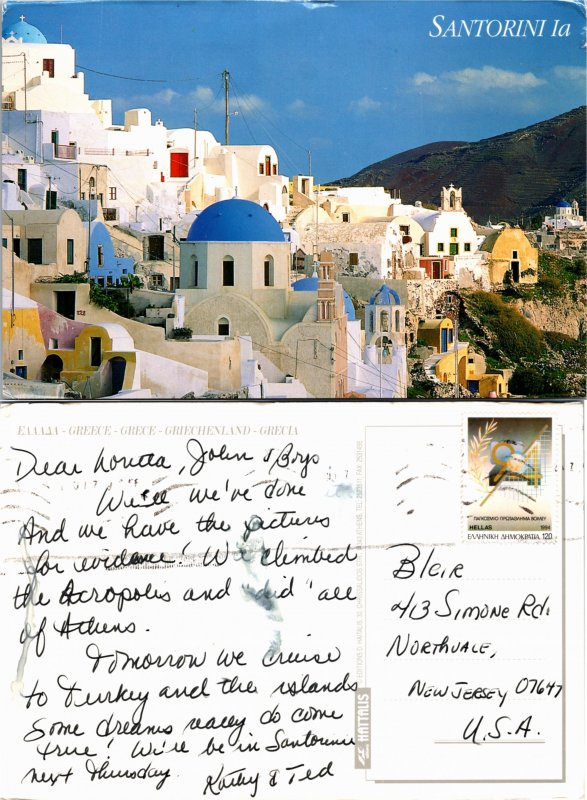 SANTORINI Ia
ΕΛΛΑΔΑ - GREECE - GRECE - GRIECHENLAND - GRECIA
Dear Loretta, John & Boys
We'll we've done
And we have the pictures
for evidence! We climbed
the Acropolis and "did" all
of Athens.
Tomorrow we cruise
to Turkey and the islands
Some dreams really do come
true! We'll be in Santorini
next Thursday.
Kathy & Ted
HAITALIS
ΠΑΓΚΟΣΜΙΟ ΠΡΩΤΑΘΛΗΜΑ ΒΟΛΛΕΥ
HELLAS 1994
ΕΛΛΗΝΙΚΗ ΔΗΜΟΚΡΑΤΙΑ 120
BLEIR
413 SIMONE Rd.
NORTHVALE,
NEW JERSEY 07647
U.S.A.